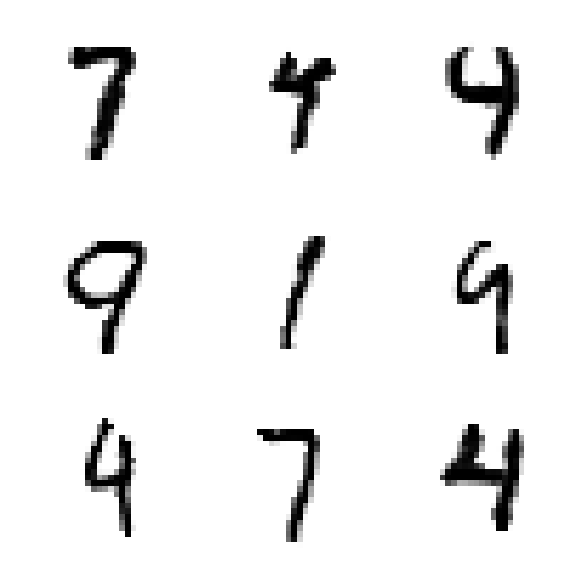 7 4 4
9 1 9
4 7 4